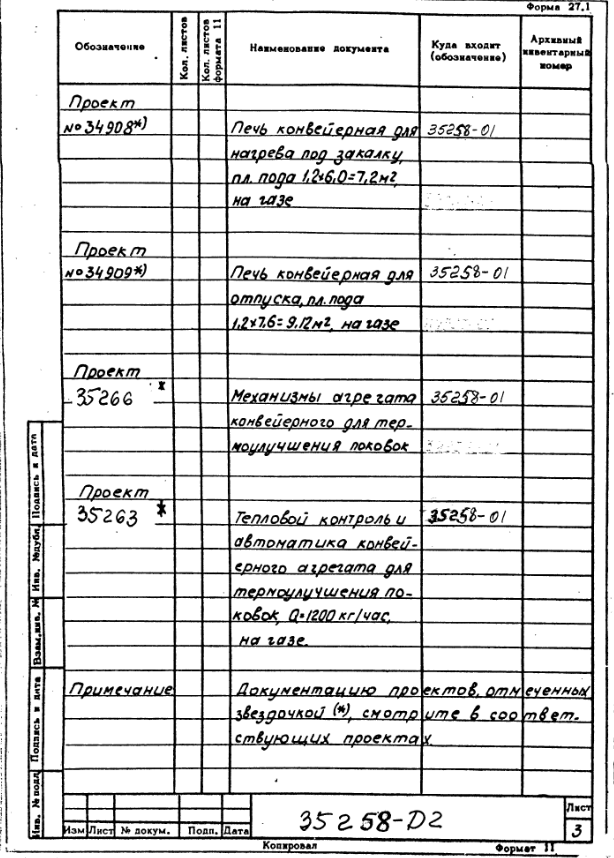 Форма 27.1
Обозначение
Кол. листов
Кол. листов формата 11
Наименование документа
Куда входит (обозначение)
Архивный инвентарный номер
Проект
№ 34908*)
Печь конвейерная для 35258-01
нагрева под закалку,
пл. пода 1,2×6,0=7,2м²,
на газе
Проект
№ 34909*)
Печь конвейерная для 35258-01
отпуска, пл. пода
1,2×7,6=9,12м², на газе
Проект
35266 *
Механизмы агрегата 35258-01
конвейерного для тер-
моулучшения поковок
Проект
35263 *
Тепловой контроль и 35258-01
автоматика конвей-
ерного агрегата для
термоулучшения по-
ковок, Q=1200 кг/час,
на газе.
Примечание Документацию проектов, отмеченных
звездочкой (*), смотрите в соответ-
ствующих проектах.
Инв. № подл.
Подпись и дата
Взам.инв. №
Инв. №дубл.
Подпись и дата
Изм Лист № докум. Подп. Дата
35258-D2
Лист
3
Копировал
Формат 11